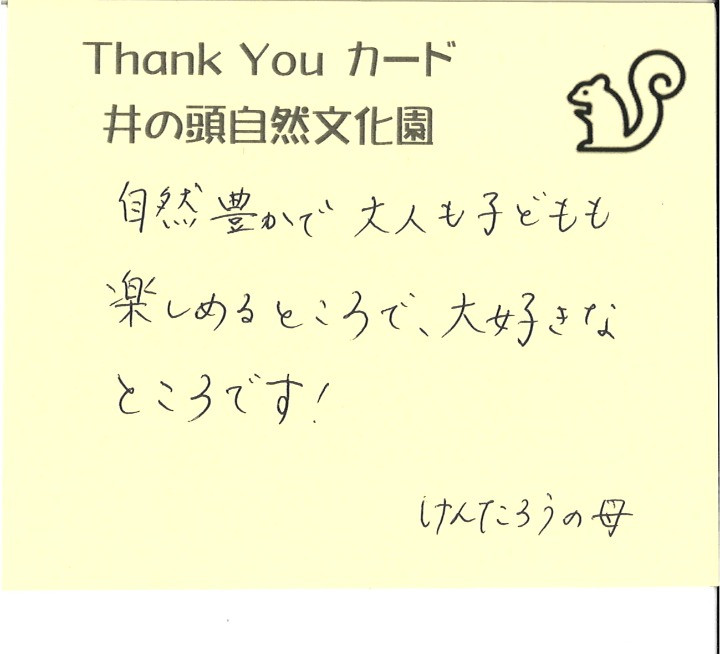 Thank You カード
井の頭自然文化園
自然豊かで 大人も子どもも
楽しめるところで、大好きな
ところです!
けんたろうの母